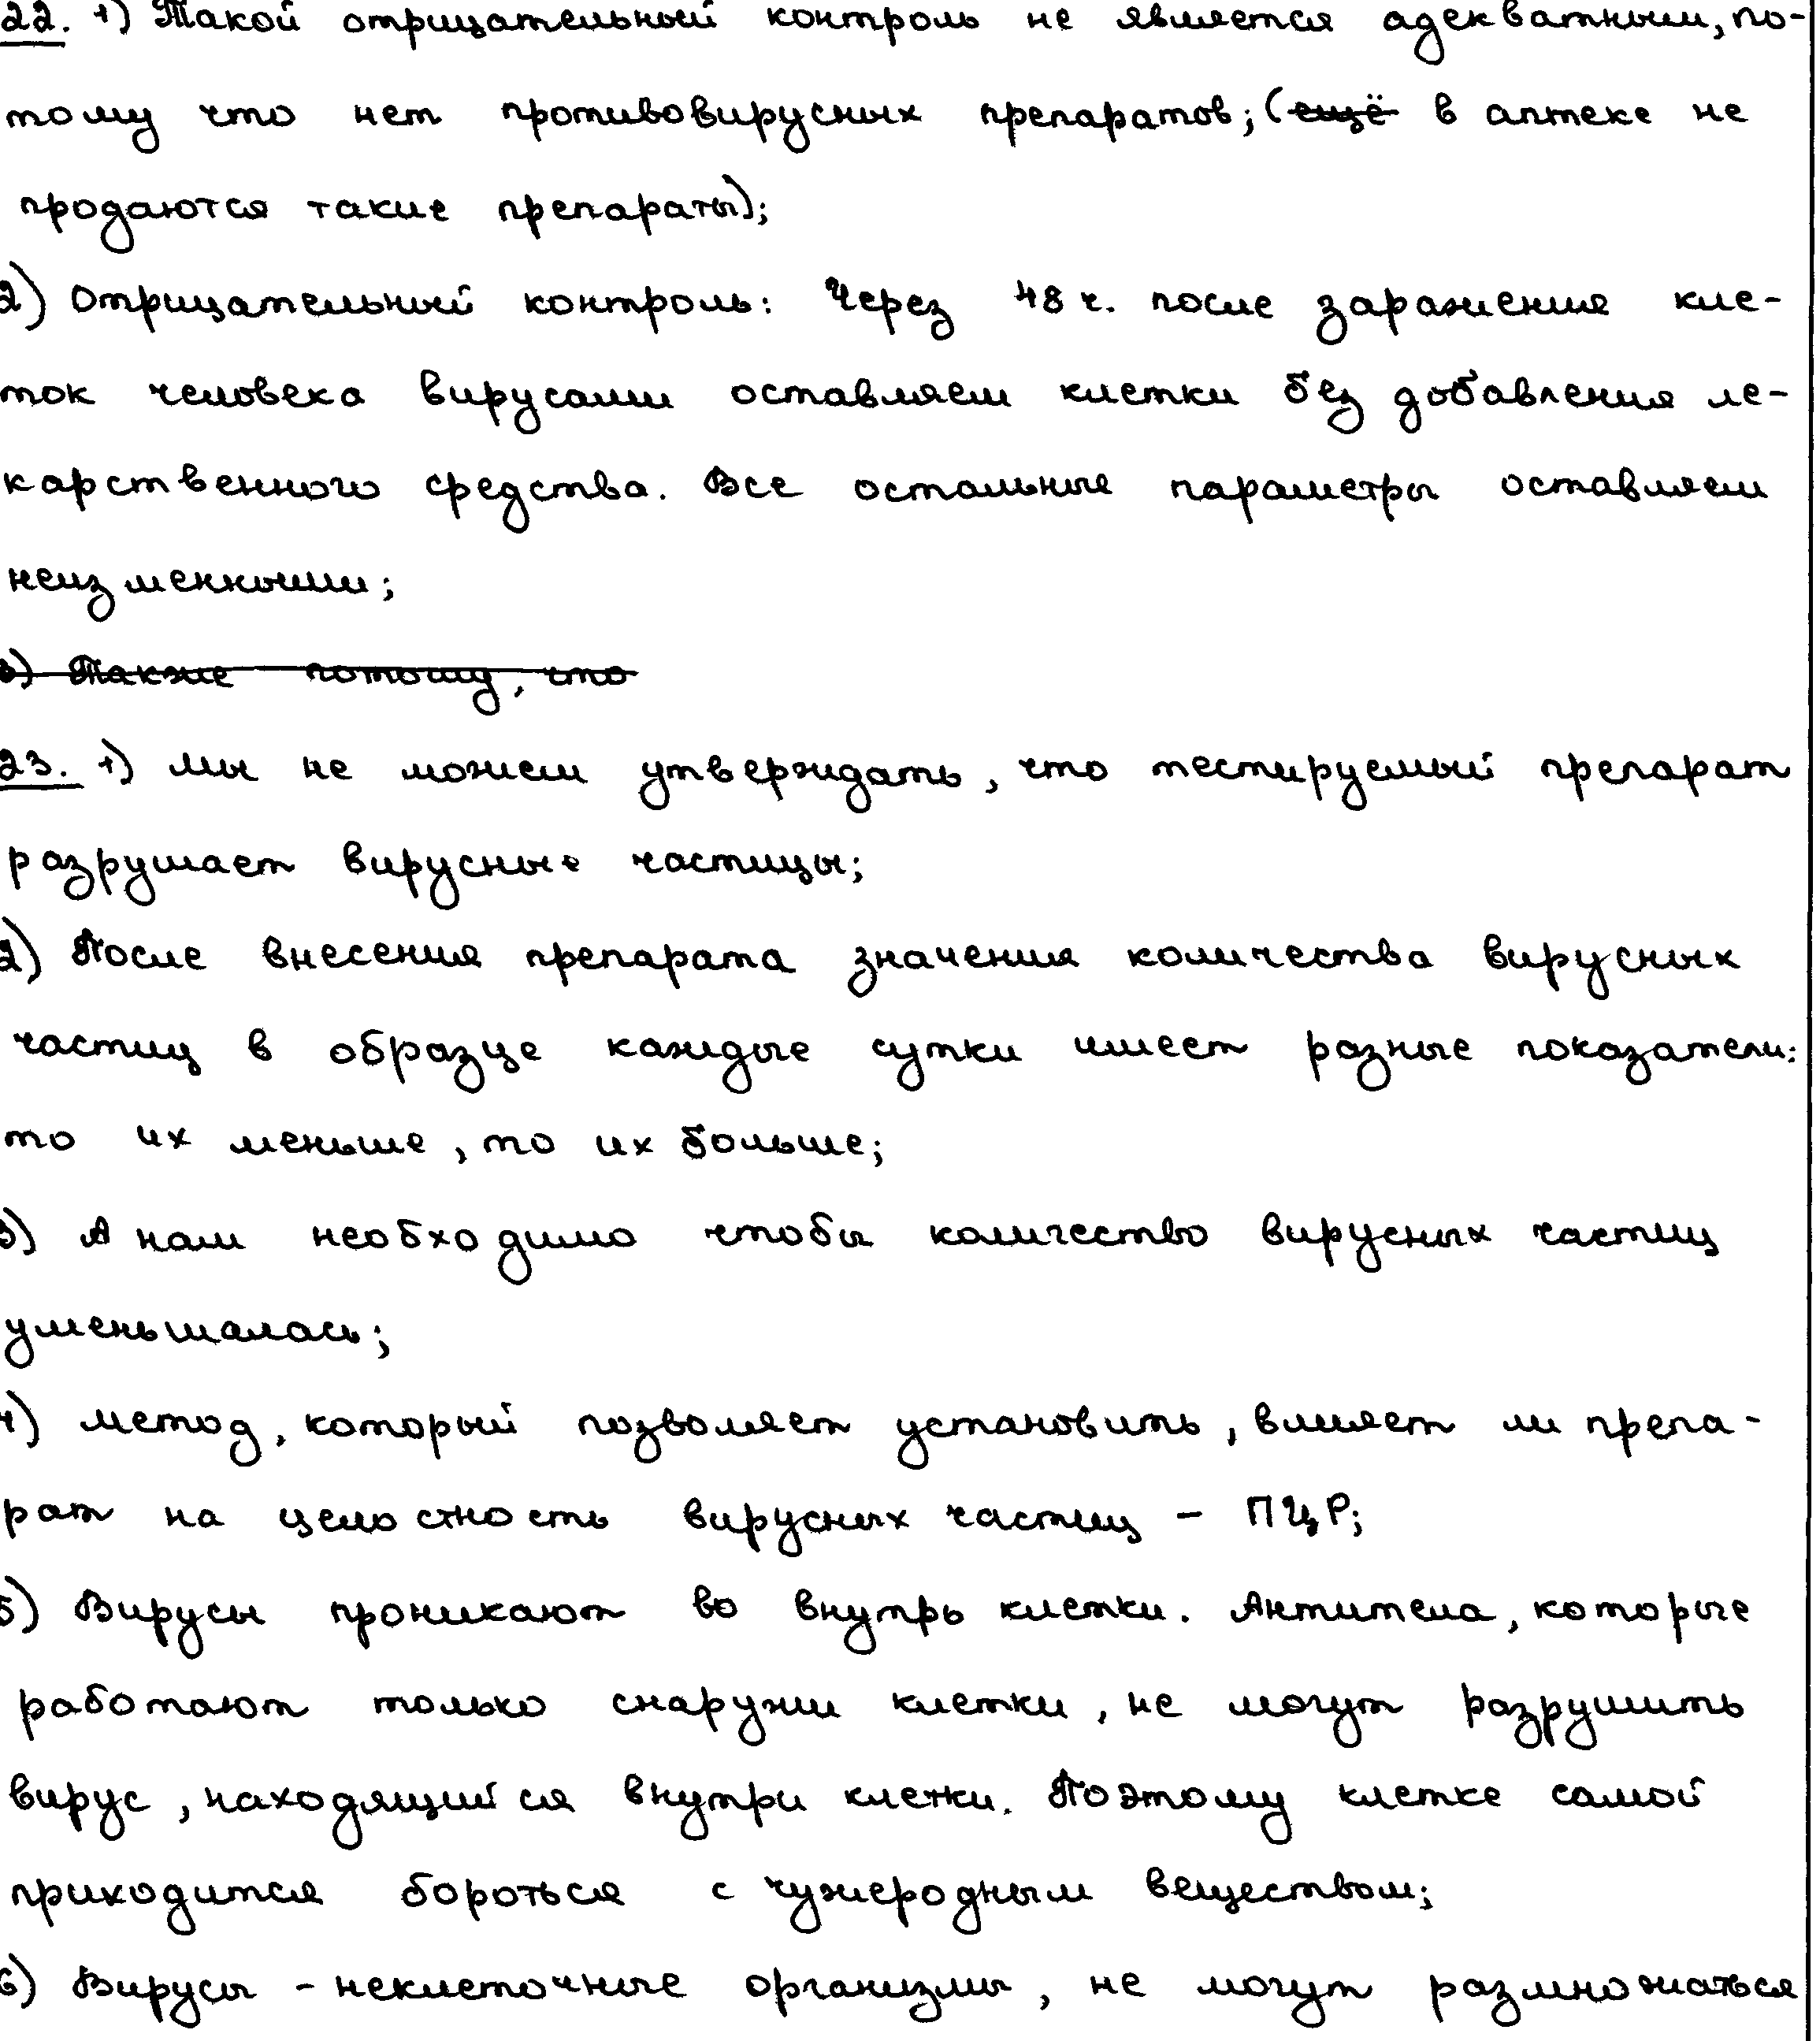 22. 1) Такой отрицательный контроль не является адекватным, по-
тому что нет противовирусных препаратов; (ещё в аптеке не
продаются такие препараты);
2) Отрицательный контроль: Через 48 ч. после заражения кле-
ток человека вирусами оставляем клетки без добавления ле-
карственного средства. Все остальные параметры оставляем
неизменными;
3) Также потому, что
23. 1) Мы не можем утверждать, что тестируемый препарат
разрушает вирусные частицы;
2) После внесения препарата значения количества вирусных
частиц в образце каждые сутки имеет разные показатели:
то их меньше, то их больше;
3) А нам необходимо чтобы количество вирусных частиц
уменьшалась;
4) Метод, который позволяет установить, влияет ли препа-
рат на целостность вирусных частиц - ПЦР;
5) Вирусы проникают во внутрь клетки. Антитела, которые
работают только снаружи клетки, не могут разрушить
вирус, находящийся внутри клетки. Поэтому клетке самой
приходится бороться с чужеродным веществом;
6) Вирусы - неклеточные организмы, не могут размножаться